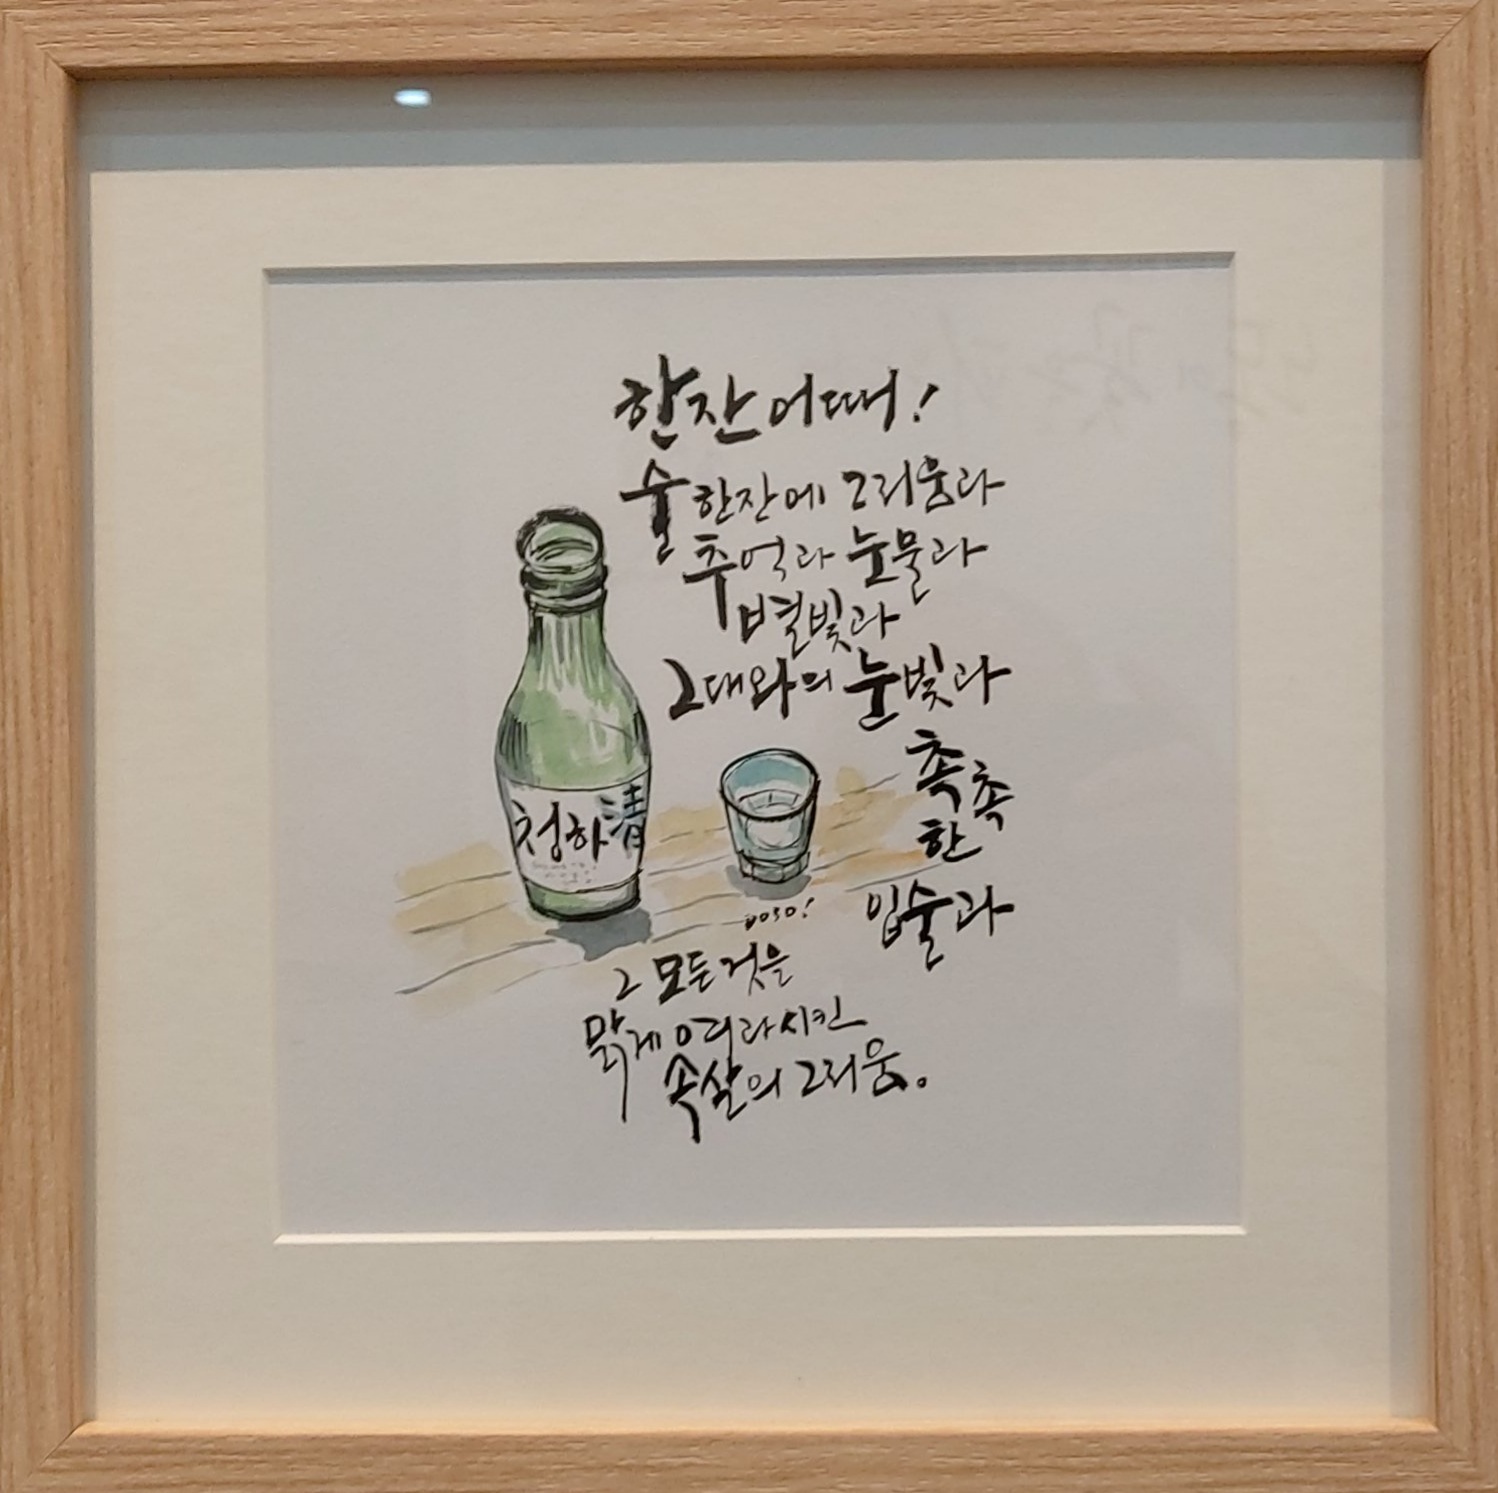 한잔 어때!
술 한잔에 그리움과
추억과 눈물과
별빛과
그대와의 눈빛과
촉촉
한
입술과
청하 清
그 모든것을
맑게 여과시킨
속살의 그리움.